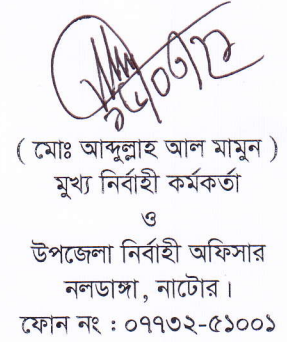 ( মোঃ আব্দুল্লাহ আল মামুন )
মুখ্য নির্বাহী কর্মকর্তা
ও
উপজেলা নির্বাহী অফিসার
নলডাঙ্গা, নাটোর।
ফোন নং : ০৭৭৩২-৫১০০১